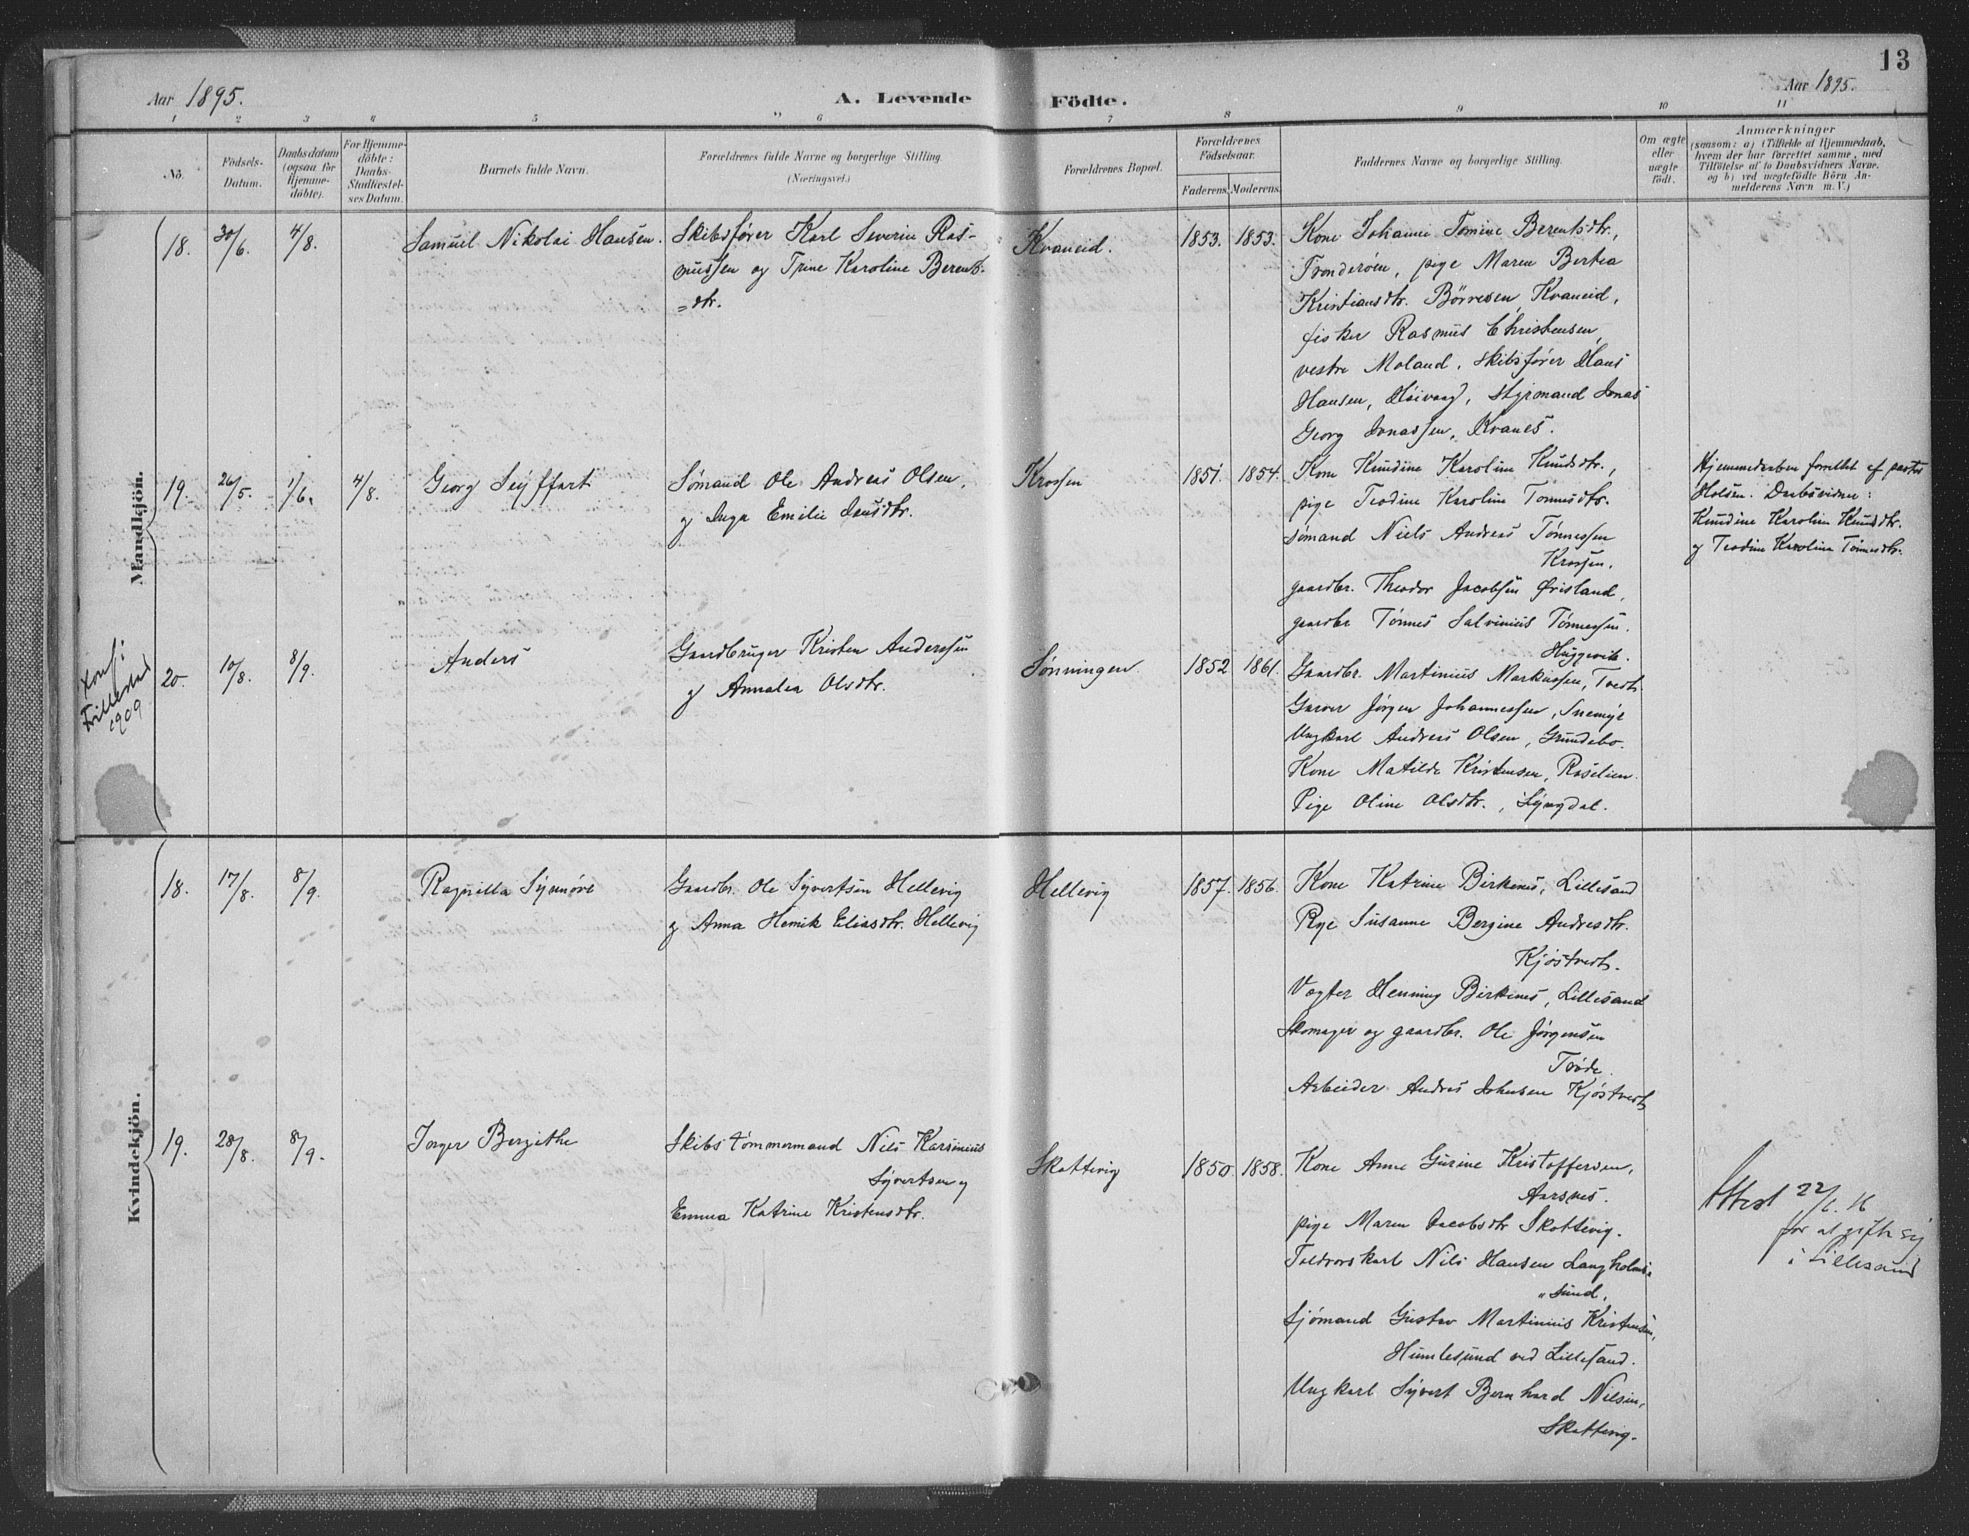 13
Aar 1895.
A. Levende Födte.
Aar 1895.
1 2 3 4 5 6 7 8 9 10 11
No.
Födsels-
Datum.
Daabsdatum
(ogsaa for
Hjemme-
döbte).
For Hjemme-
döbte:
Daabs-
Stadfæstel-
ses Datum.
Barnets fulde Navn.
Forældrenes fulde Navne og borgerlige Stilling.
(Næringsvei.)
Forældrenes Bopæl.
Forældrenes
Födselsaar.
Faderens. Moderens.
Faddernes Navne og borgerlige Stilling.
Om ægte
eller
uægte
födt.
Anmærkninger
(saasom: a) i Tilfælde af Hjemmedaab,
hvem der har forrettet samme, med
Tilföielse af to Daabsvidners Navne,
og b) ved uægtefödte Börn An-
melderens Navn m. V.)
Mandkjön.
18. 30/6. 4/8. Samuel Nikolai Hansen.
Skibsfører Karl Severin Ras-
mussen og Trine Karoline Berents-
=dtr.
Kvaneid. 1853. 1853.
Kone Johanne Tomine Berentsdtr.,
Trønderøen, pige Maren Bertea
Kristiansdtr. Børresen, Kvaneid,
fisker Rasmus Christensen,
vestre Moland, Skibsfører Hans
Hansen, Høivaag, Styrmand Jonas
Georg Jonassen, Kvanes.
19. 26/5. 1/6. 4/8. Georg Seyffart
Sømand Ole Andreas Olsen,
og Inga Emilie Jensdtr.
Krossen 1851. 1854.
Kone Knudine Karoline Knudsdtr.,
pige Teodine Karoline Tønnesdtr.
sømand Niels Andreas Tønnessen
Krossen.
gaardbr. Theodor Jacobsen Øvisland,
gaardbr Tønnes Salvinius Tønnessen.
Huggevik.
Hjemmedaaben forrettet af pastor
Holsen. Daabsvidner:
Knudine Karoline Knudsdtr.
og Teodine Karoline Tønnesdtr.
Konf. i
1909
20. 10/8. 8/9. Anders
Gaardbruger Kristen Anderssen
og Annalea Olsdtr.
Sønningen 1852 1861.
Gaardbr. Martinius Markussen, Tvedt.
Garver Jørgen Johannessen, Snemyr
Ungkarl Andreas Olsen, Grundebo.
Kone Matilde Kristensen, Roselien.
Pige Oline Olsdtr., Lyngdal.
Kvindekjön.
18. 17/8. 8/9. Ragnilla Synnøve
Gaardbr. Ole Syvertsen Hellevig
og Anna Henrik Eliasdtr. Hellevig
Hellevig 1857. 1856.
Kone Katrine Birkenes, Lillesand
Pige Susanne Bergine Andresdtr.
Kjøstvedt.
Vogter Henning Birkenes, Lillesand
Skomager og gaardbr. Ole Jørgensen
Trøde.
Arbeider Andres Johnsen Kjøstvedt
19. 28/8. 8/9. Inger Bergithe
Skibstømmermand Nils Karsinius
Syvertsen og
Emma Katrine Kristensdtr.
Skottevig 1850. 1858.
Kone Anne Gurine Kristoffersen,
Aarsnes.
pige Maren Jacobsdtr Skottevig.
Toldrorskarl Nils Hansen Langholms-
"sund,
Sjømand Gustav Martinius Kristensen,
Humlesund ved Lillesand.
Ungkarl Syvert Bernhard Nilsen,
Skottevig.
Attest 22/1. 16
for at gifte sig
i Lillesand